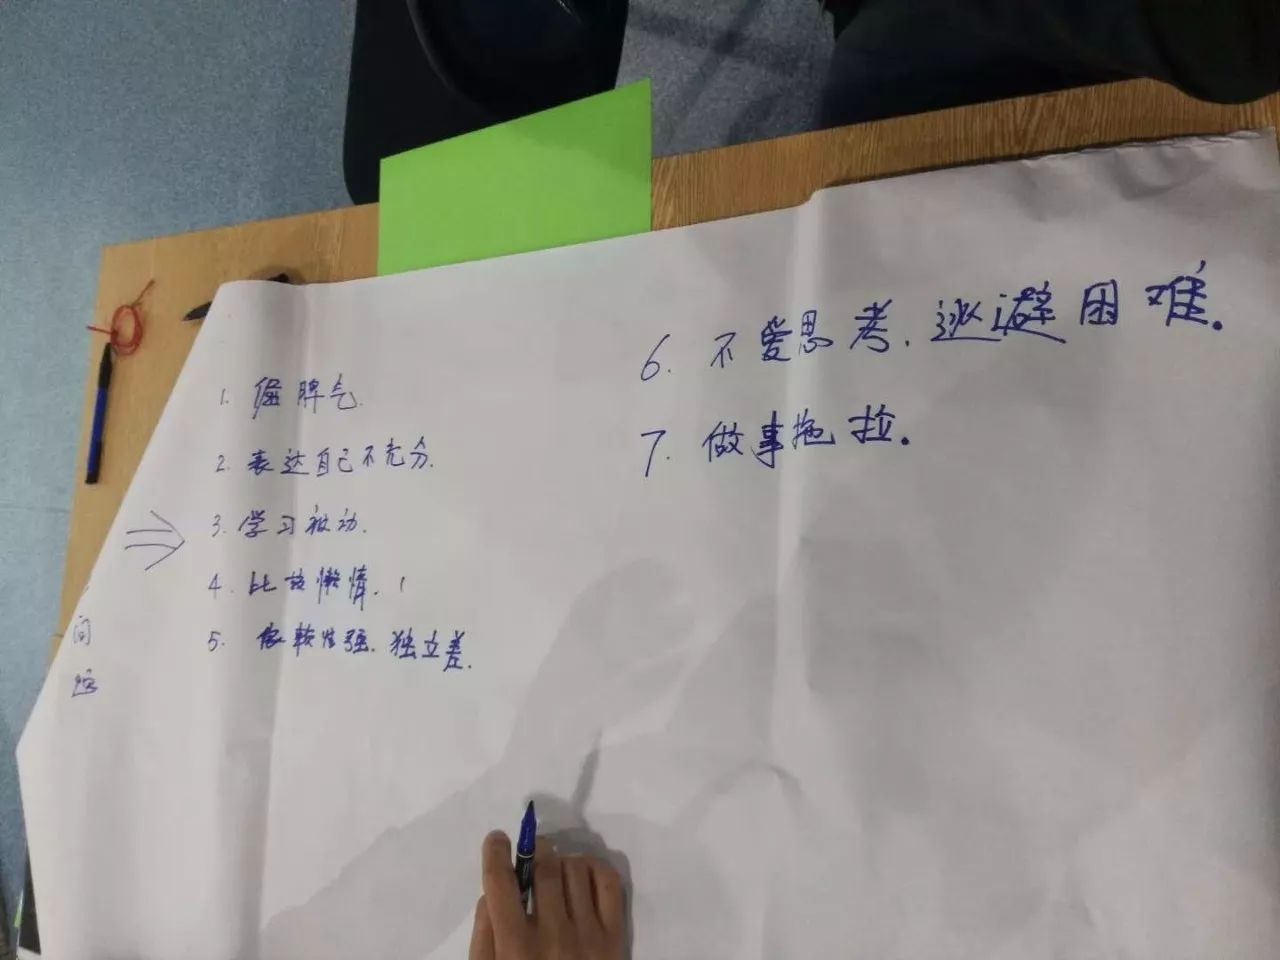 1. 倔脾气.
2. 表达自己不充分.
3. 学习被动.
4. 比较懒惰.
5. 依赖性强. 独立差.
6. 不爱思考. 逃避困难.
7. 做事拖拉.
问
题